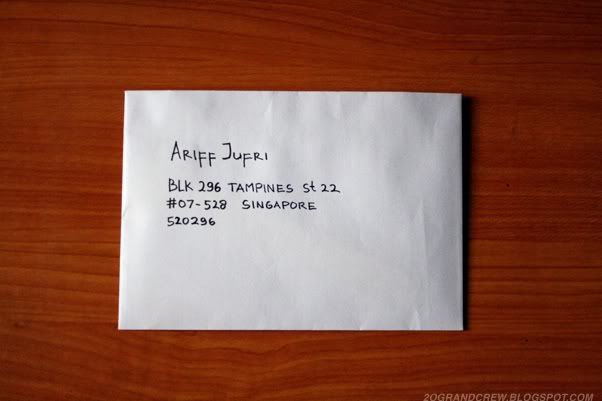 ARIFF JUFRI
BLK 296 TAMPINES St 22
#07-528 SINGAPORE
520296
2OGRANDCREW.BLOGSPOT.COM